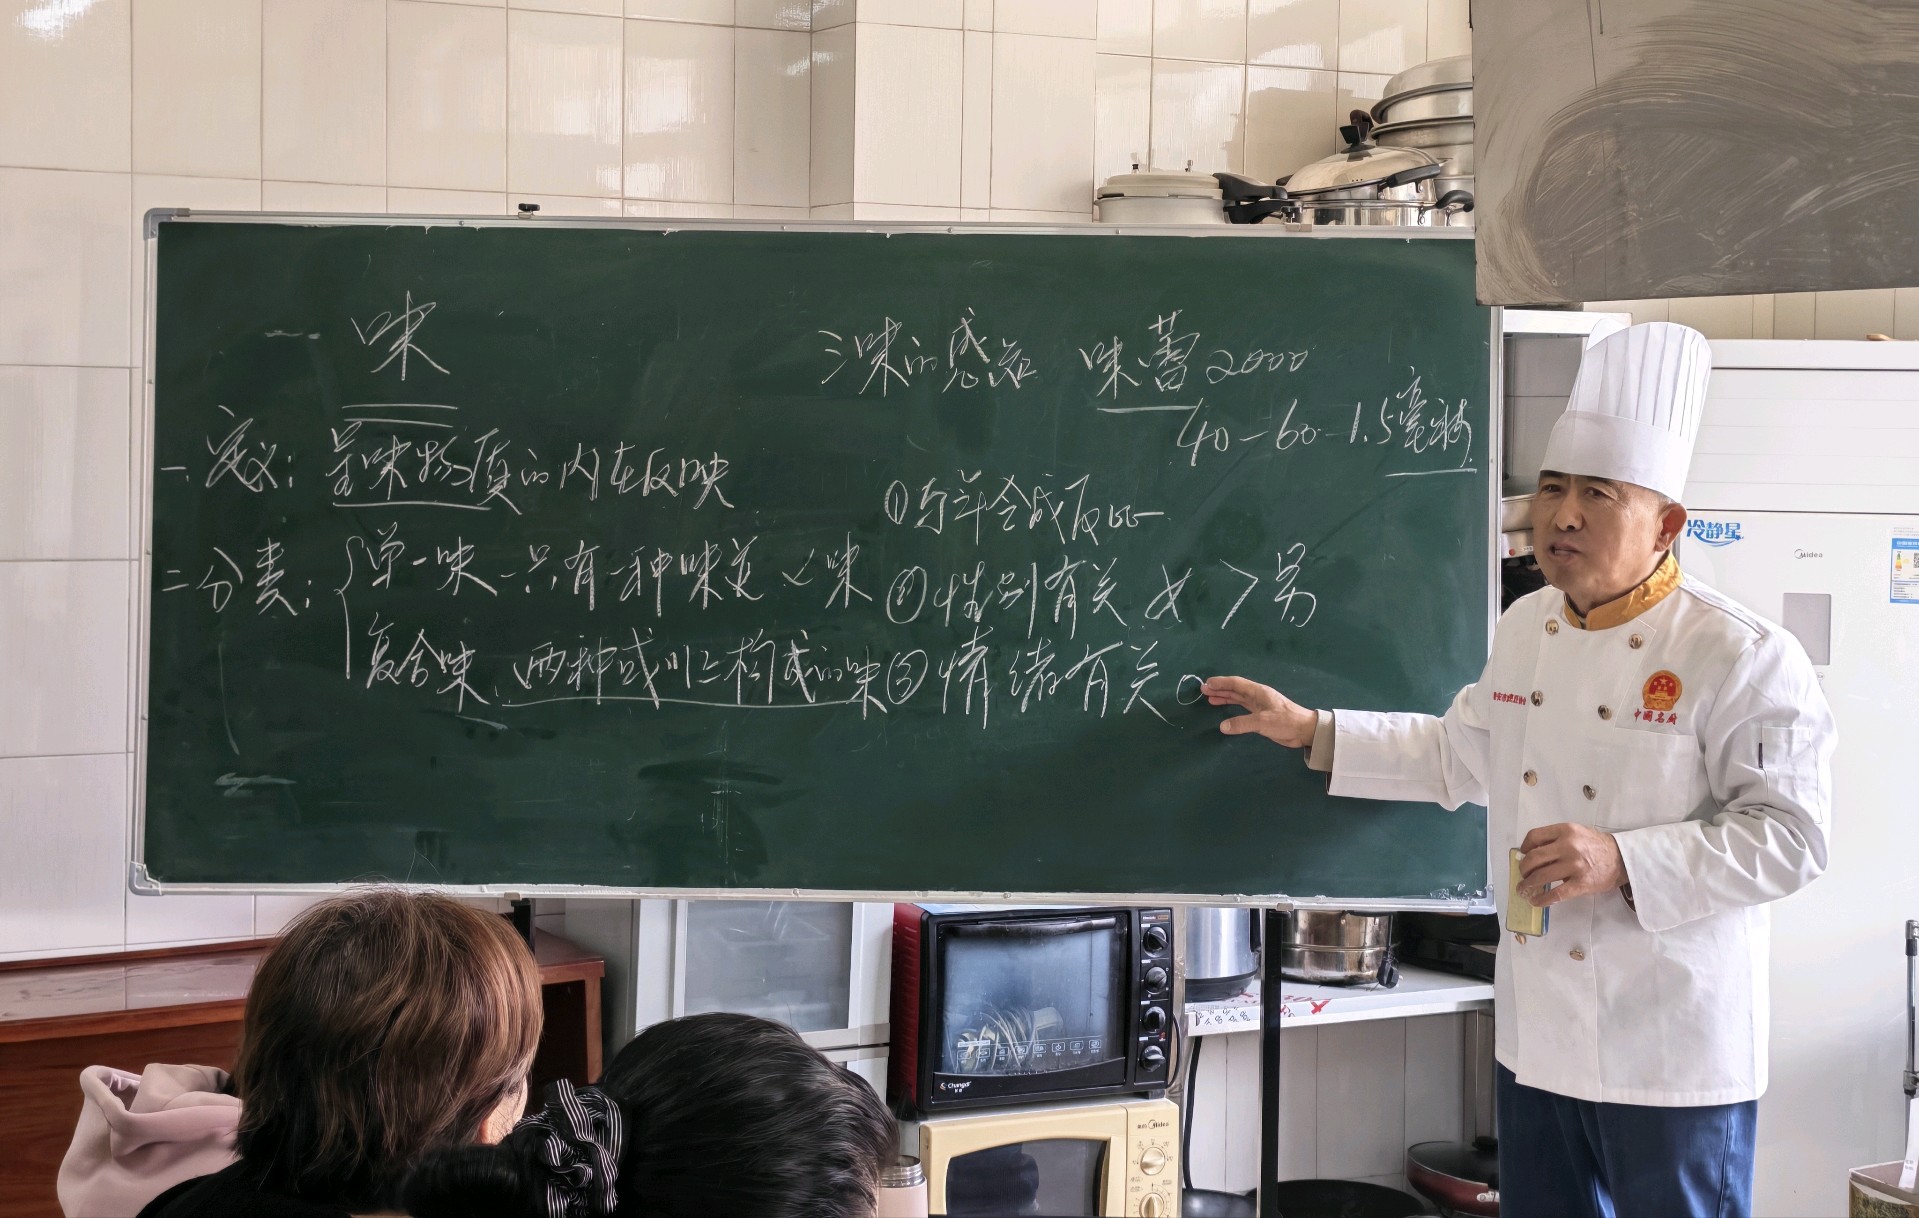 一 味
一.定义：呈味物质的内在反映
二分类：
单一味 只有一种味道 味
复合味 两种或以上构成的味
三味的感知 味蕾2000
40-60-1.5毫秒
①与年令成反比
②性别有关 女>男
③情绪有关。
中国名厨
冷静星
Midea
Changdi
Midea